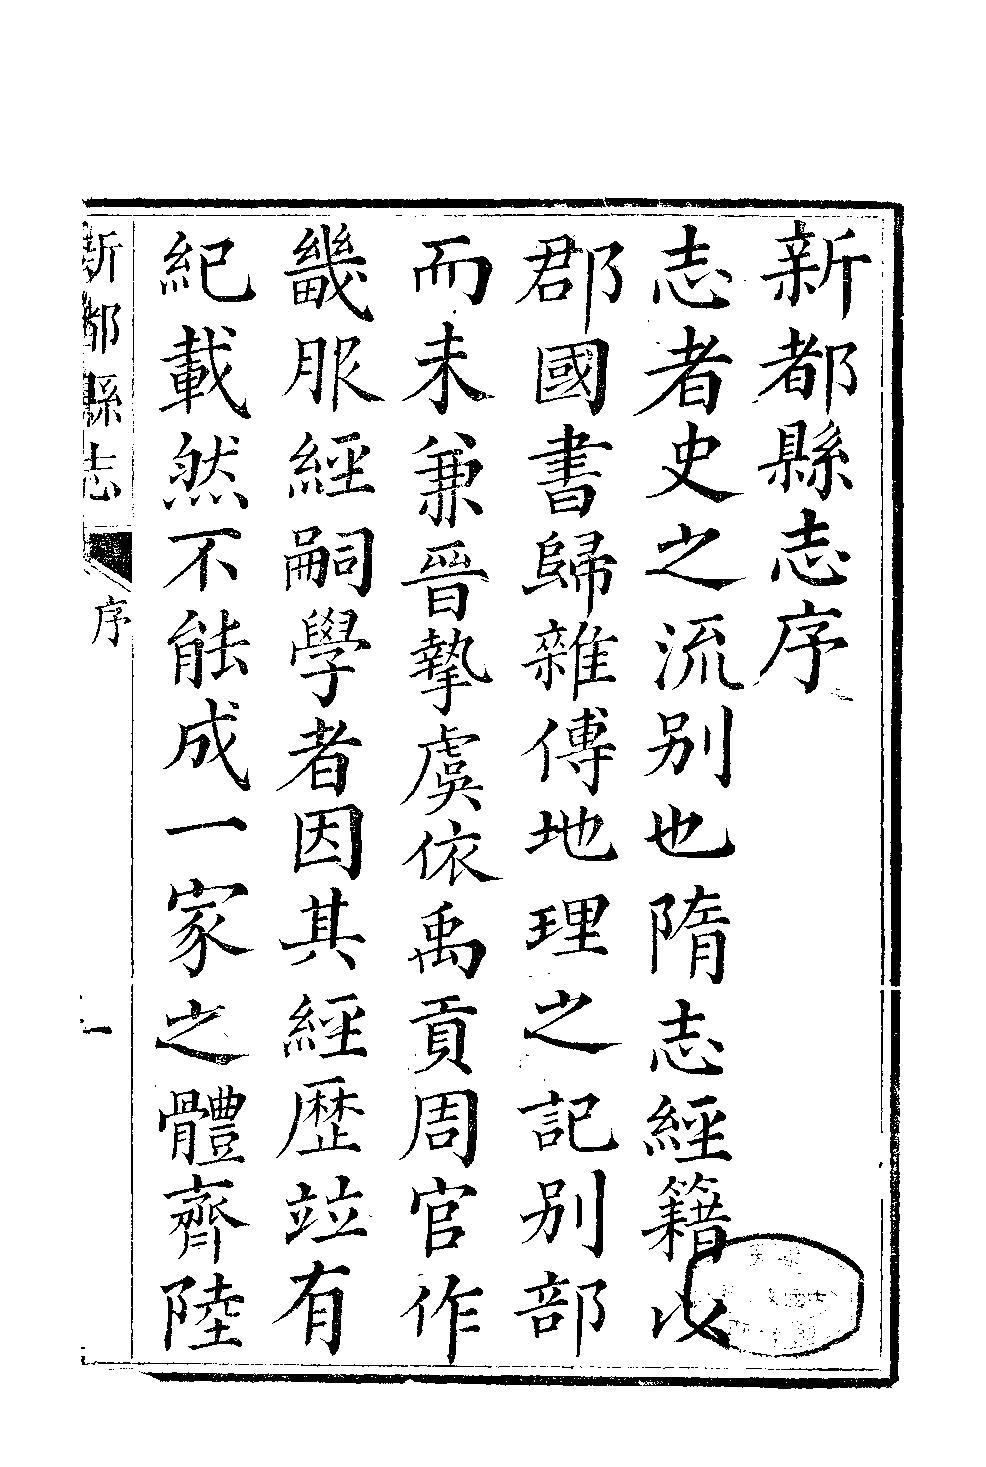 新都縣志序
志者史之流别也隋志經籍以
郡國書歸雜傳地理之記别部
而未兼晉摯虞依禹貢周官作
畿服經嗣學者因其經歷竝有
紀載然不能成一家之體齊陸
新都縣志
序
一